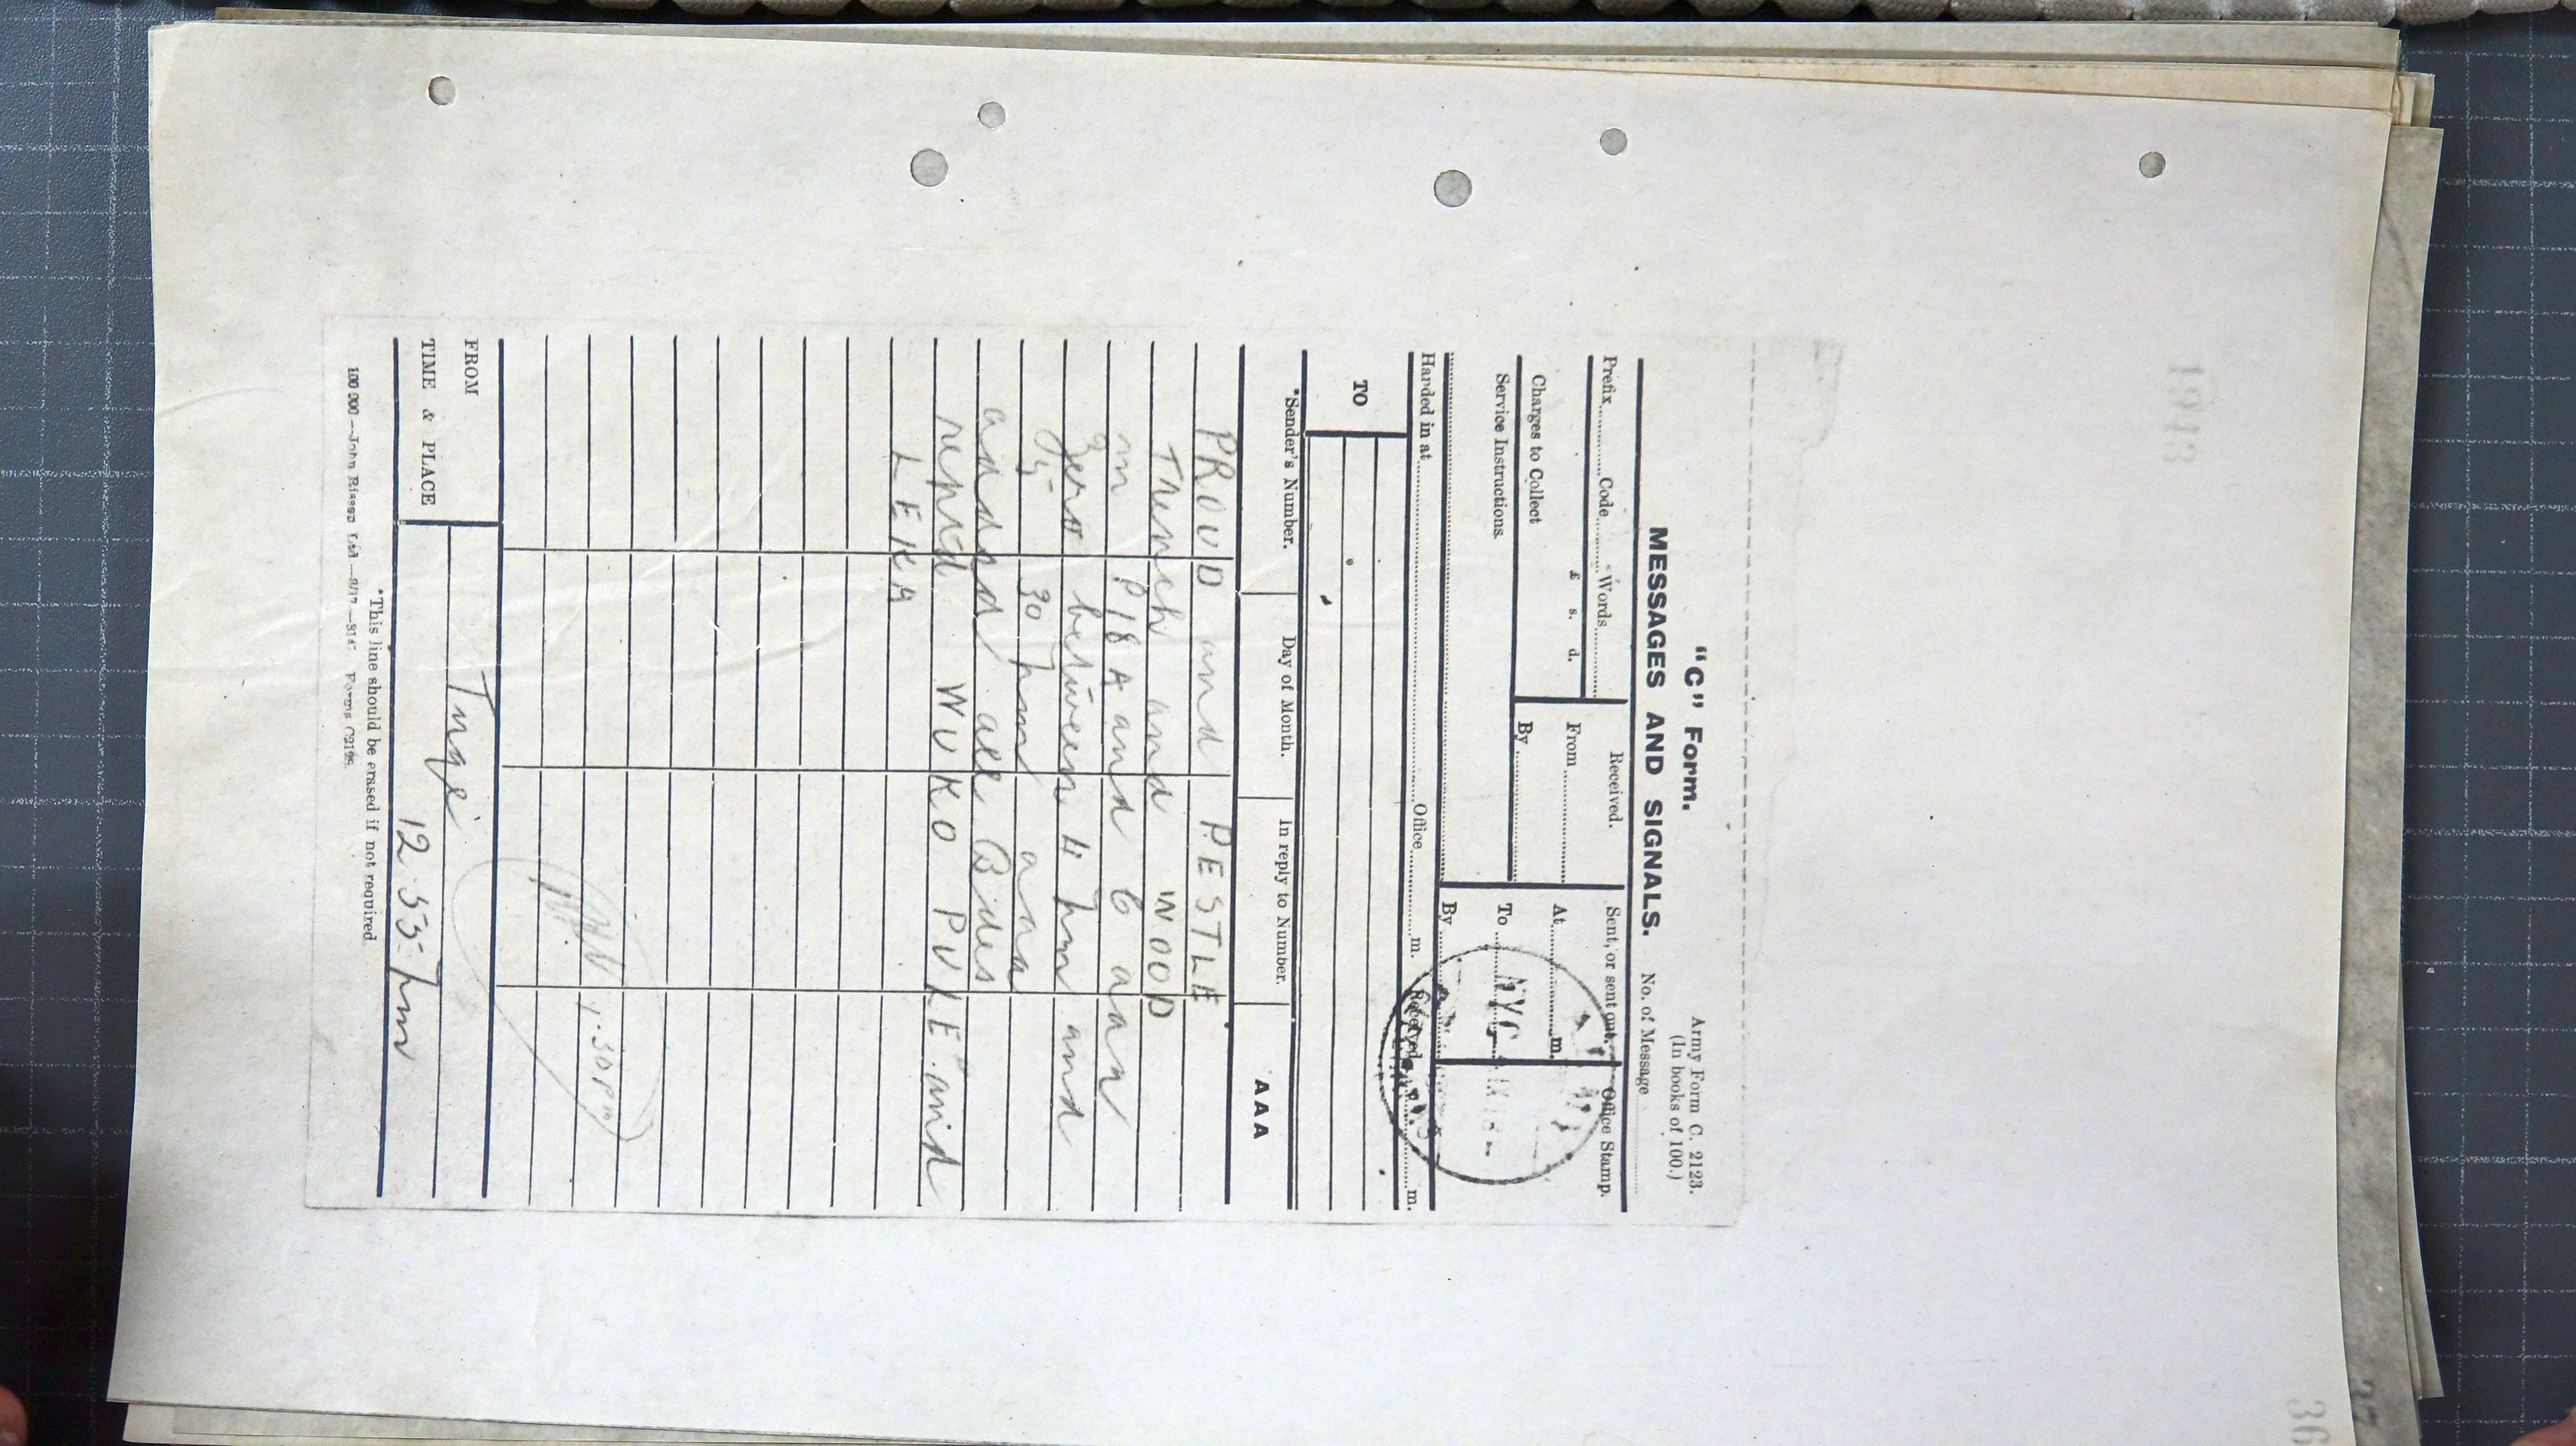 "C" Form.
Army Form C. 2123.
(In books of 100.)
MESSAGES AND SIGNALS.
No. of Message
Prefix Code Words
Received.
Sent, or sent out.
Office Stamp.
£ s. d.
From
At m.
Charges to Collect
By
To
Service Instructions.
By
Handed in at Office m. Received m.
TO
*Sender's Number.
Day of Month.
In reply to Number.
AAA
PROUD and PESTLE
Trench and WOOD
in P18A and 6 aaa
Zero between 4 pm and
30 pm aaa
addsd all Bdes
reptd WUKO PULE and
LEKA
1.30 pm
FROM
TIME & PLACE
12.55 pm
*This line should be erased if not required.
36